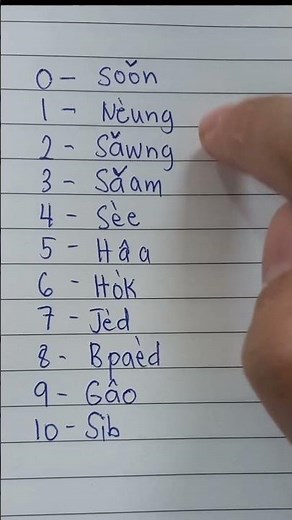 0 - Soǒn
1 - Nèung
2 - Sǎwng
3 - Sǎam
4 - Sèe
5 - Hâa
6 - Hòk
7 - Jèd
8 - Bpaèd
9 - Gâo
10 - Sìb